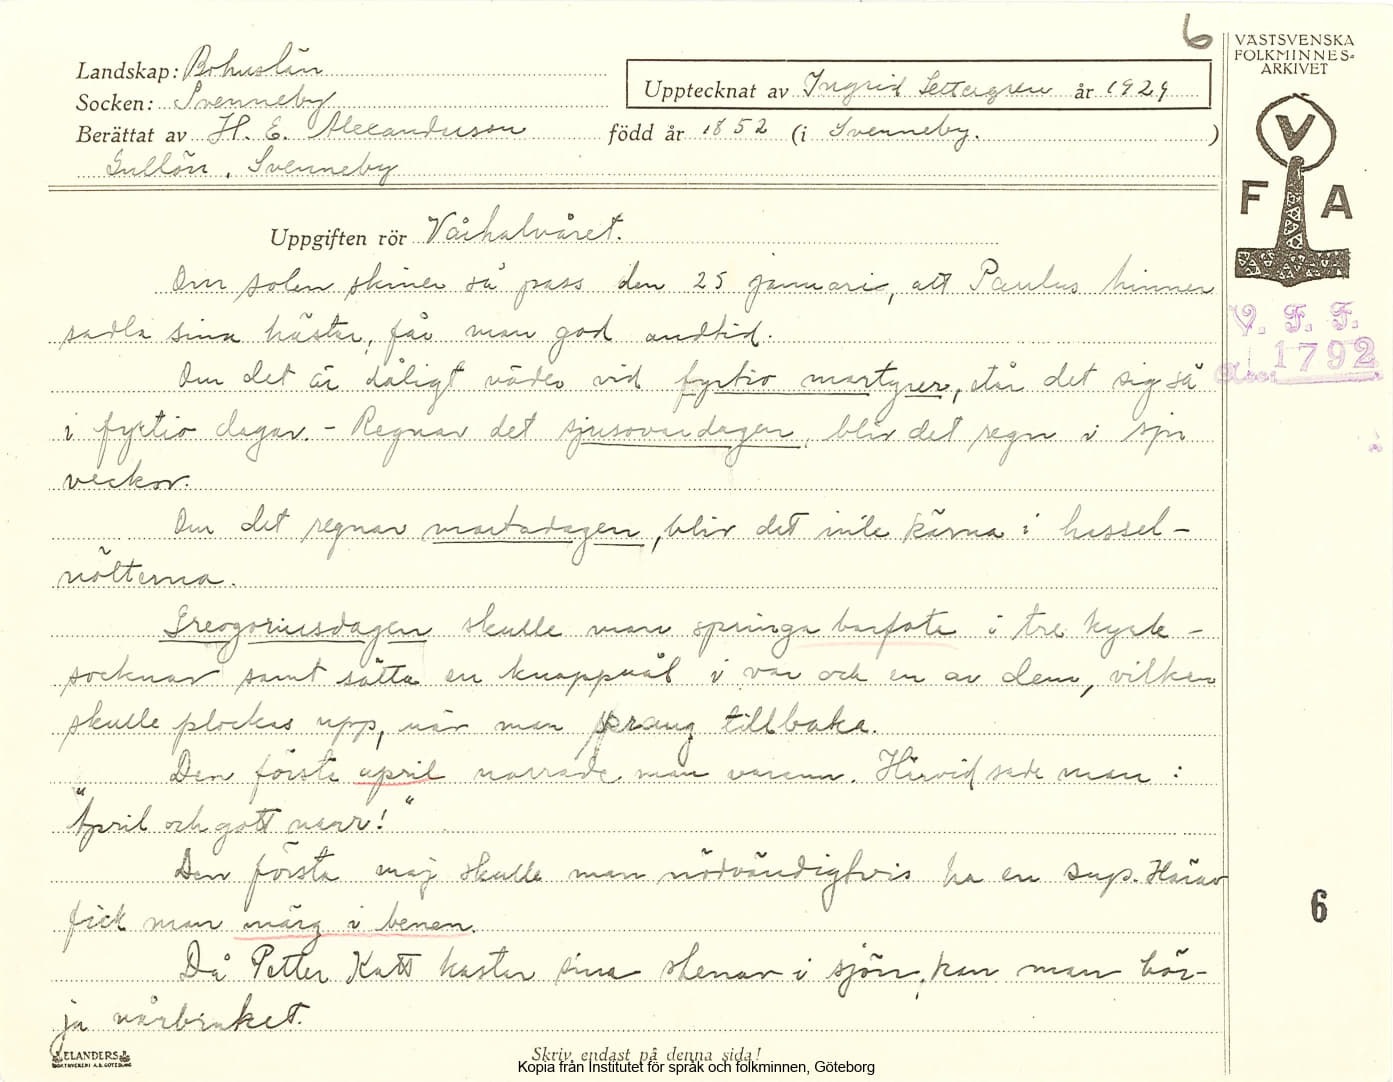 6
VÄSTSVENSKA
FOLKMINNES-
ARKIVET
Landskap: Bohuslän
Socken: Svenneby
Upptecknat av Ingrid Settergren år 1929
Berättat av H. E. Alexanderson född år 1852 (i Svenneby. )
Gullön, Svenneby
V
F A
Uppgiften rör Vårhalvåret.
Om solen skiner så pass den 25 januari, att Paulus hinner
sadla sina hästar, får man god andtid.
V. F. F.
1792
Om det är dåligt väder vid fyrtio martyrer, står det sig så
i fyrtio dagar. - Regnar det sjusovardagen, blir det regn i sju
veckor.
Om det regnar martadagen, blir det inte kärna i hassel-
nötterna.
Greogoriusdagen skulle man springa barfota i tre kyrk-
socknar samt sätta en knappnål i var och en av dem, vilken
skulle plockas upp, när man sprang tillbaka.
Den första april narrade man varann. Härvid sade man:
"April och gott narr!"
Den första maj skulle man nödvändigtvis ha en sup. Härav
fick man märg i benen.
6
Då Petter Katt kastar sina stenar i sjön, kan man bör-
ja vårbruket.
ELANDERS
BOKTRYCKERI A.B. GÖTEBORG
Skriv endast på denna sida!
Kopia från Institutet för språk och folkminnen, Göteborg